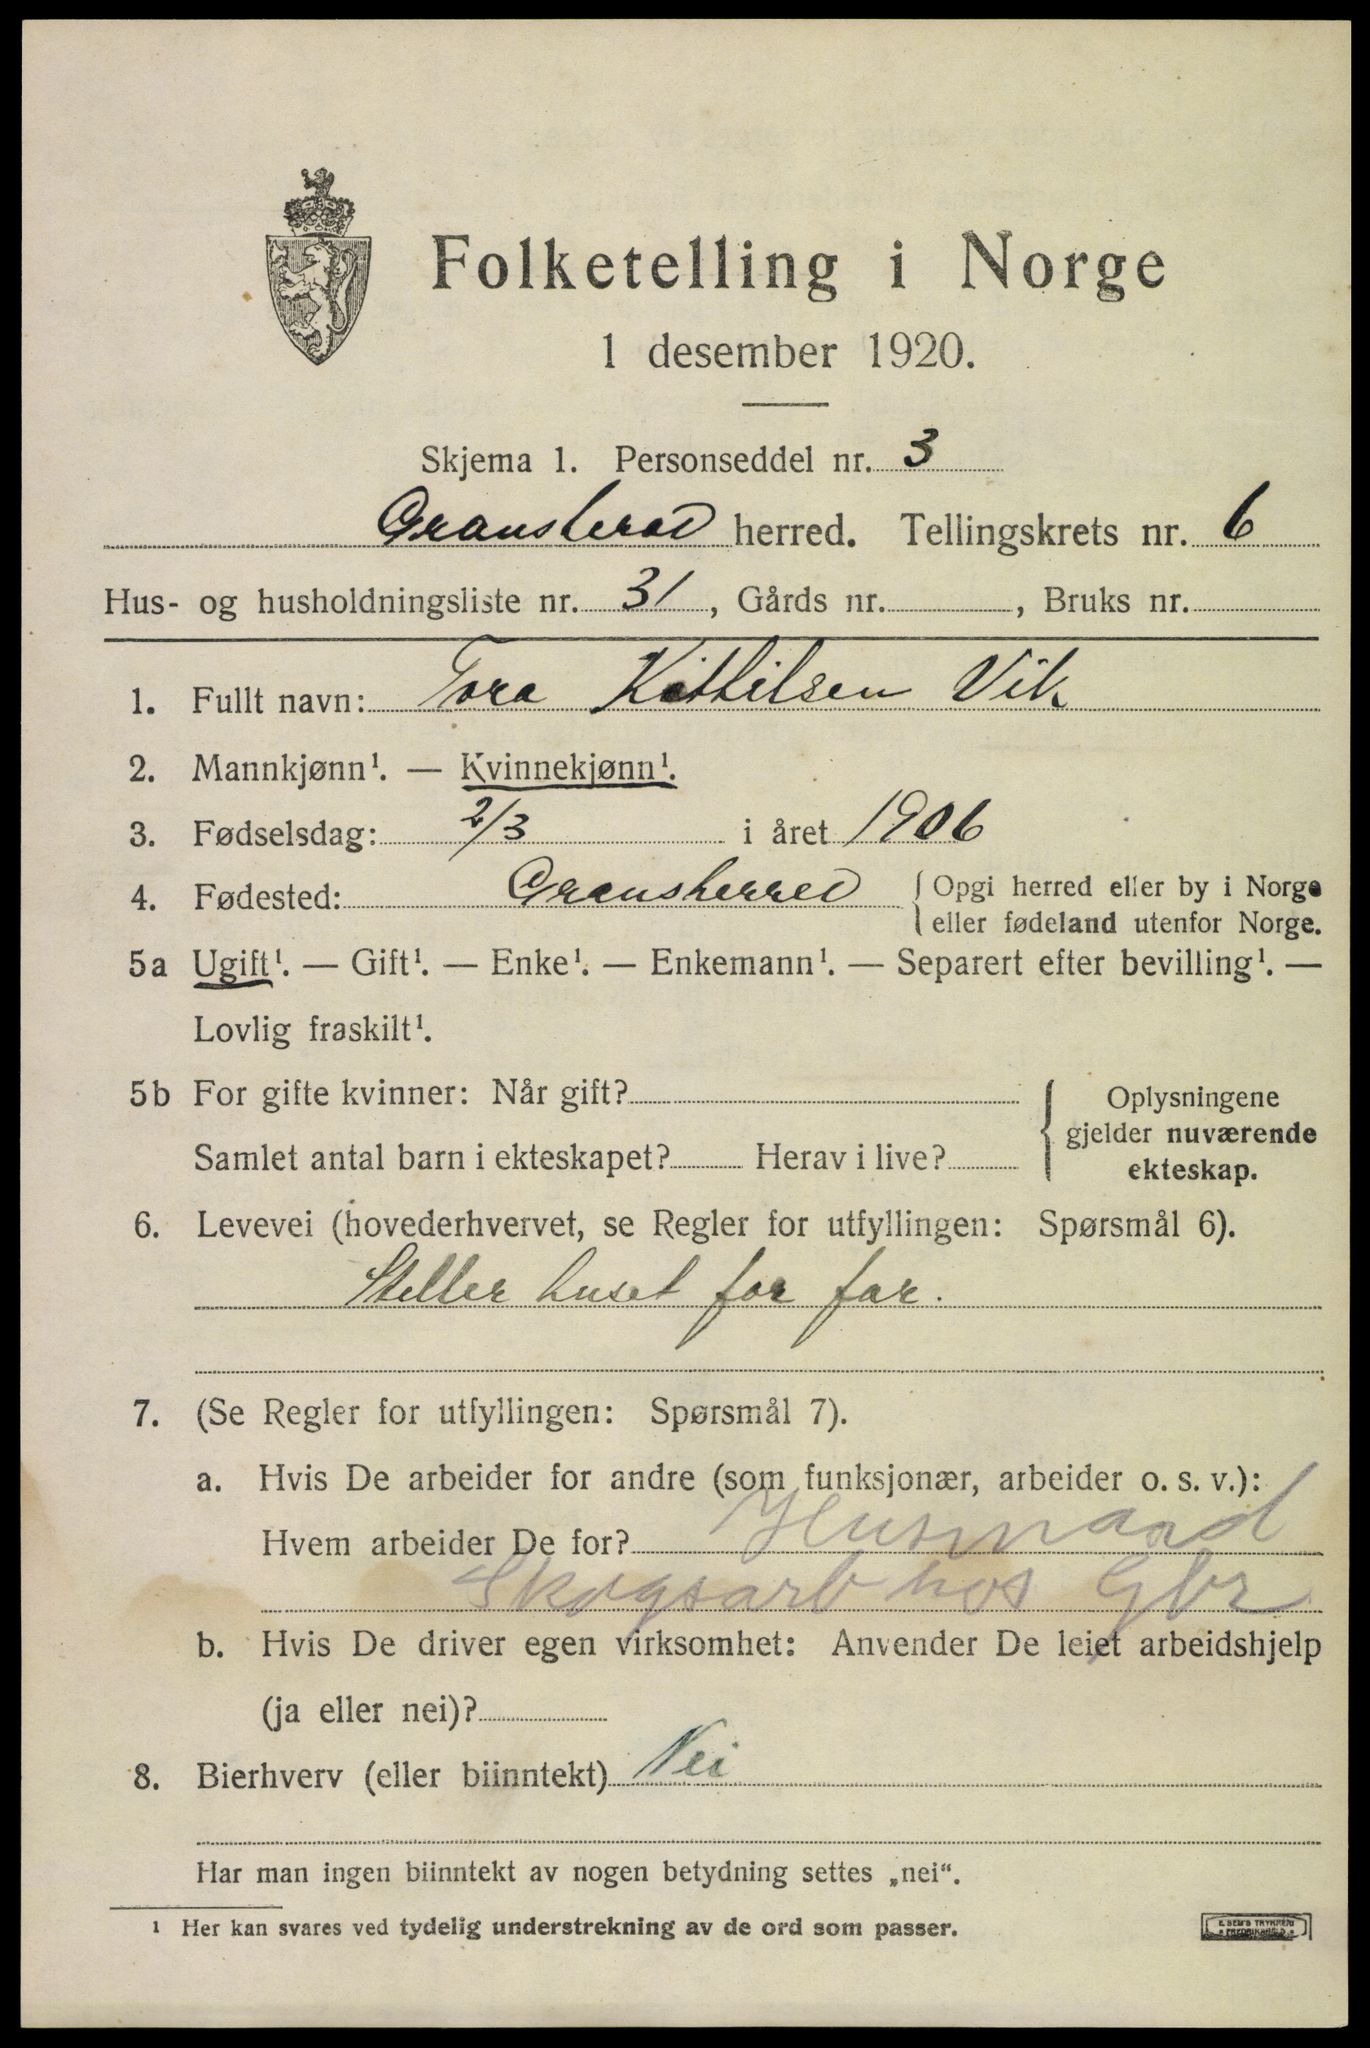 Folketelling i Norge
1 desember 1920.
Skjema 1. Personseddel nr. 3
Gransherad herred. Tellingskrets nr. 6
Hus- og husholdningsliste nr. 31, Gårds nr. , Bruks nr.
1. Fullt navn: Tora Kittilsen Vik
2. Mannkjønn¹. — Kvinnekjønn¹.
3. Fødselsdag: 2/3 i året 1906
4. Fødested: Gransherred { Opgi herred eller by i Norge
eller fødeland utenfor Norge.
5a Ugift¹. — Gift¹. — Enke¹. — Enkemann¹. — Separert efter bevilling¹. —
Lovlig fraskilt¹.
5b For gifte kvinner: Når gift?
Samlet antal barn i ekteskapet? Herav i live?
{ Oplysningene
gjelder nuværende
ekteskap.
6. Levevei (hovederhvervet, se Regler for utfyllingen: Spørsmål 6).
Steller huset for far.
7. (Se Regler for utfyllingen: Spørsmål 7).
a. Hvis De arbeider for andre (som funksjonær, arbeider o. s. v.):
Hvem arbeider De for? Husmand
Skogsarb hos Gbr
b. Hvis De driver egen virksomhet: Anvender De leiet arbeidshjelp
(ja eller nei)?
8. Bierhverv (eller biinntekt) Nei
Har man ingen biinntekt av nogen betydning settes „nei“.
¹ Her kan svares ved tydelig understrekning av de ord som passer.
E. SEM'S TRYKKERI
FREDRIKSHALD